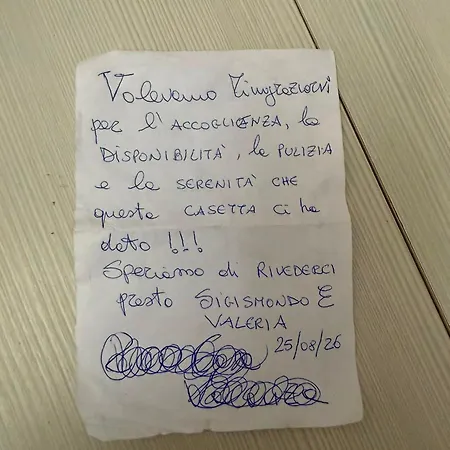 Volevamo Ringraziarvi
per l'ACCOGLIENZA, la
DISPONIBILITÀ, la PULIZIA
e la SERENITÀ CHE
questa CASETTA ci ha
dato !!!
Speriamo di RIVEDERCI
presto SIGISMONDO E
VALERIA
25/08/26